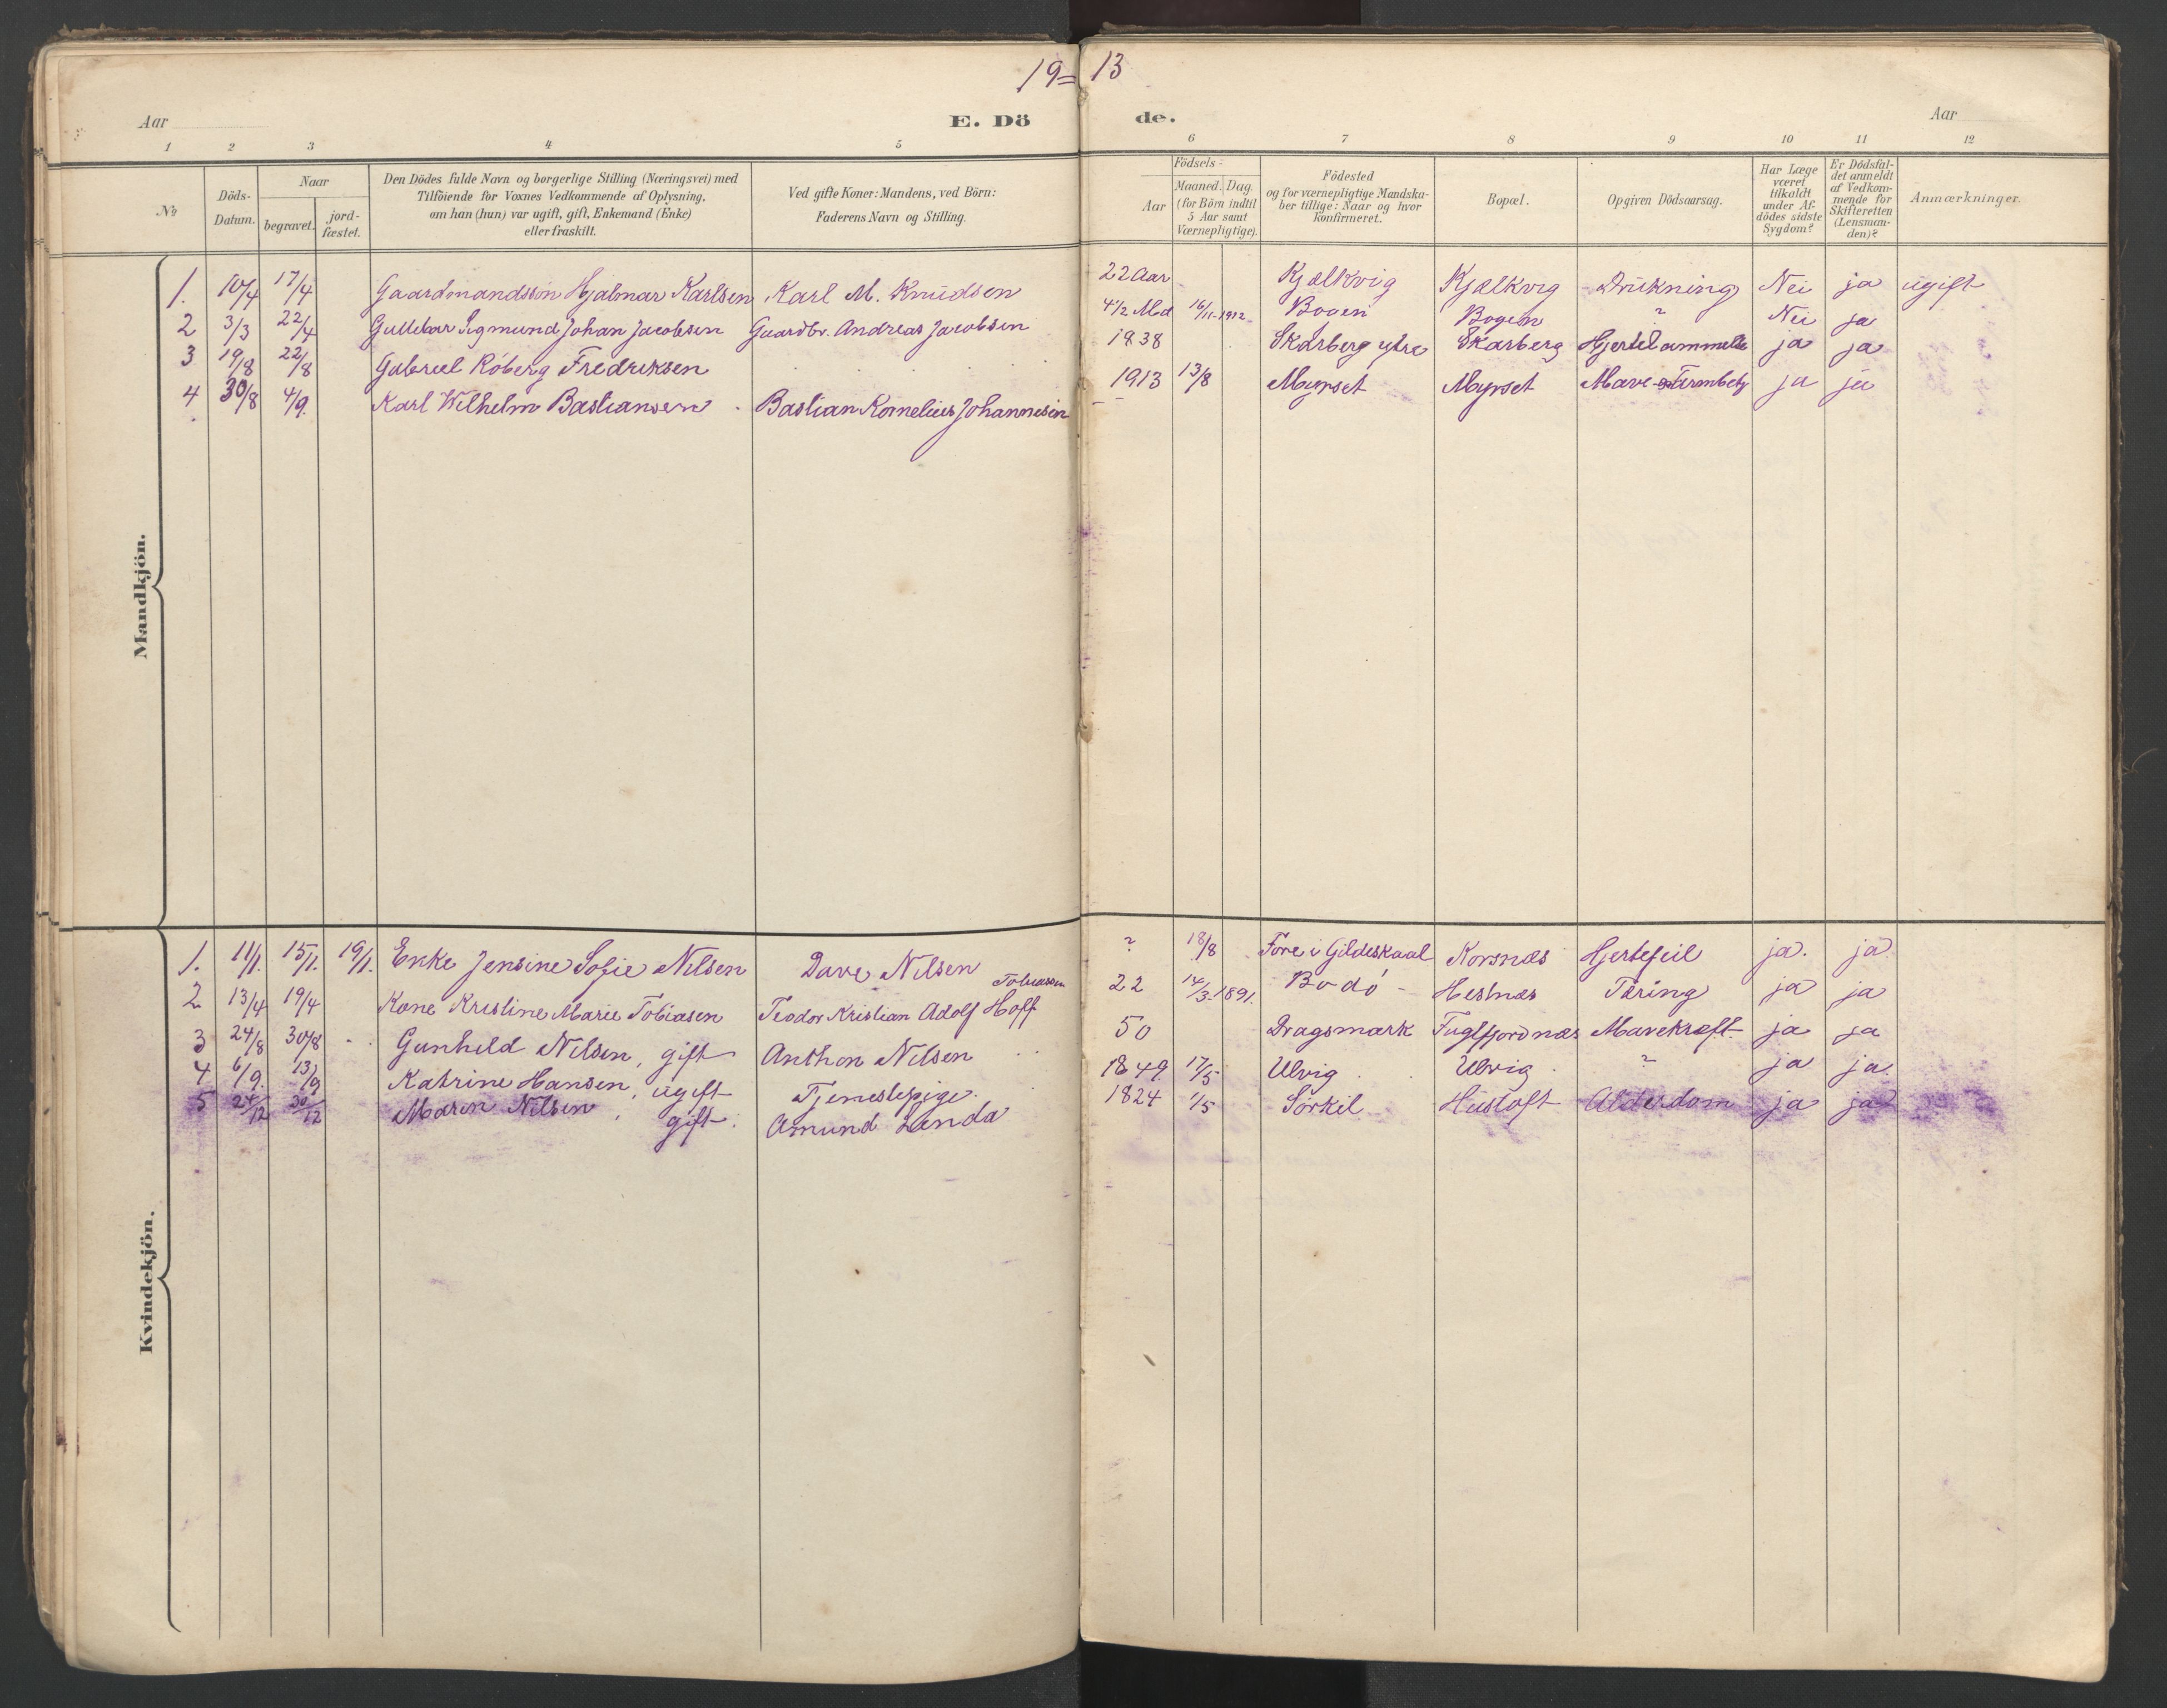 19=13
Aar
E. Dö
de.
Aar
1 2 3 4 5 6 7 8 9 10 11 12
No
Döds-Datum.
Naar
begravet.
jord-fæstet.
Den Dödes fulde Navn og borgerlige Stilling (Næringsvei) med
Tilföiende for Voxnes Vedkommende af Oplysning,
om han (hun) var ugift, gift, Enkemand (Enke)
eller fraskilt.
Ved gifte Koner: Mandens, ved Börn:
Faderens Navn og Stilling.
Födsels-
Aar
Maaned. Dag.
(for Börn indtil
5 Aar samt
Værnepligtige).
Födested
og for værnepligtige Mandska-
ber tillige: Naar og hvor
konfirmeret.
Bopæl.
Opgiven Dödsaarsag.
Har Læge
været
tilkaldt
under Af-
dödes sidste
Sygdom?
Er Dödsfal-
det anmeldt
af Vedkom-
mende for
Skifteretten
(Lensman-
den)?
Anmærkninger.
Mandkjön.
1. 10/4 17/4 Gaardmandssön Hjalmar Karlsen Karl M. Knudsen 22 Aar Kjælkvig Kjælkvig Drukning Nei ja ugift
2 3/3 22/4 Guttebar Sigmund Johan Jacobsen Gaardbr. Andreas Jacobsen 4 1/2 Md 16/11-1912 Bogen Bogen ? Nei ja
3 19/8 22/8 Gabriel Roberg Fredriksen 1838 Skarberg ytre Skarberg Hjertelammelse ja ja
4 30/8 4/9. Karl Wilhelm Bastiansen Bastian Kornelius Johannesen 1913 13/8 Myrset Myrset Mave ja ja
Kvindekjön.
1. 11/1. 15/1. 19/1. Enke Jensine Sofie Nilsen Dave Nilsen ? 18/8 Fore i Gildeskaal Korsnæs Hjertefeil ja. ja
Tobiassen
2 13/4 19/4 Kone Kristine Marie Tobiasen Teodor Kristian Adolf Hoff 22 14/3.1891. Bodö Hestnæs Tæring ja ja
3 24/8 30/8 Gunhild Nilsen, gift Anthon Nilsen 50 Dragsmark Fuglfjordnæs Mavekræft ja ja
4 6/9. 13/9 Katrine Hansen, ugift Tjenestepige. 1849 17/5 Ulvig Ulvig ? ja ja.
5 24/12 30/12 Maren Nilsen, gift. Amund Landa 1824 1/5 Sörkil Hustoft Alderdom ja ja